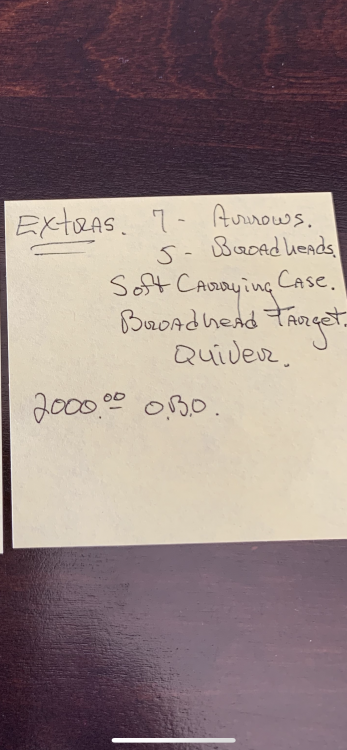 EXtRAS. 7 - Arrows.
5 - Broadheads.
Soft Carrying Case.
Broadhead Target.
Quiver.
2000.00 O.B.O.